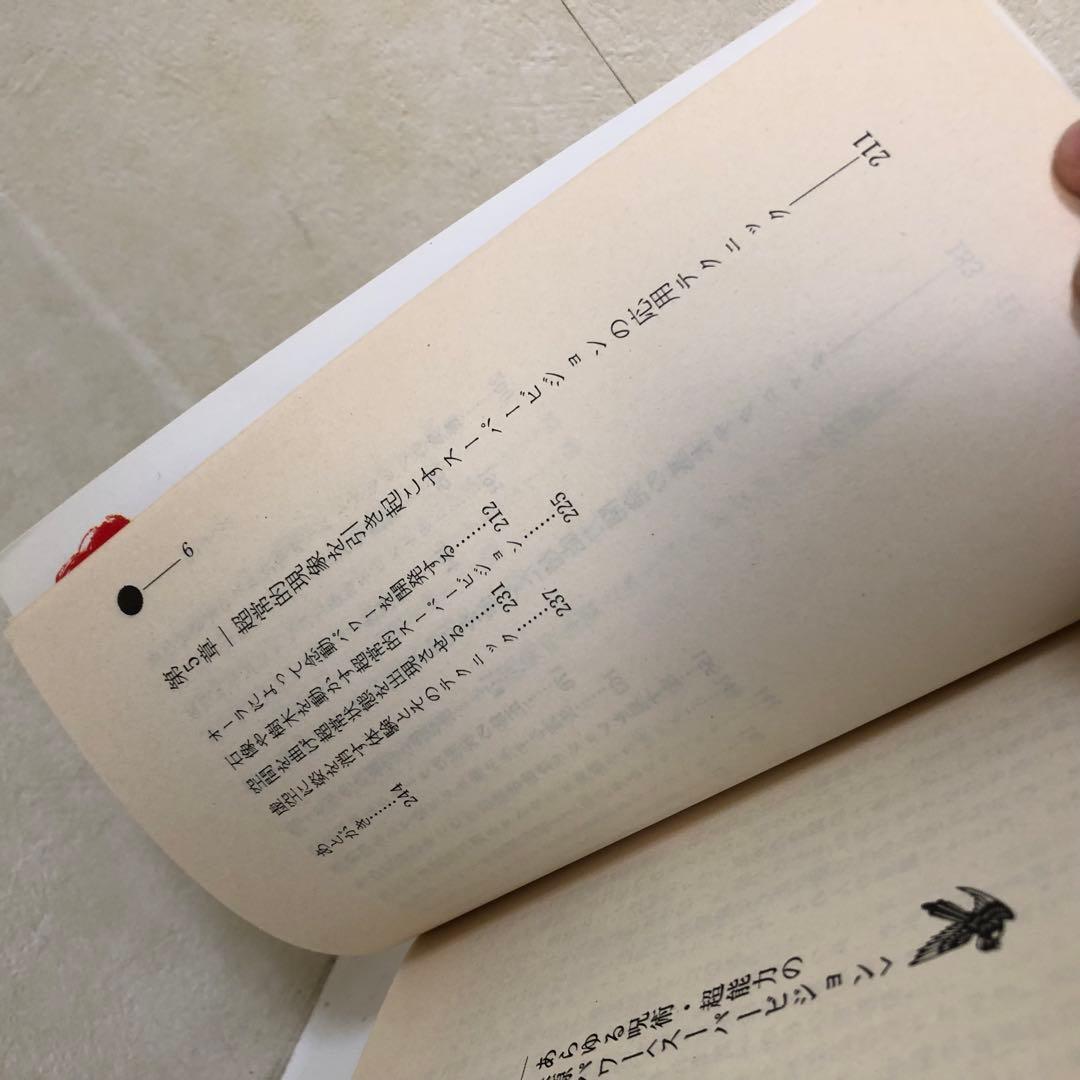 第5章―超常的現象を引き起こすスーパービジョンの応用テクニック――211
オーラによって念動パワーを開発する……212
石像や樹木を動かす超常的スーパービジョン……225
空間を曲げ超常状態を出現させる……231
虚空に姿を消す体験とそのテクニック……237
あとがき……244
9
あらゆる呪術・超能力の
パワー〈スーパービジョン〉